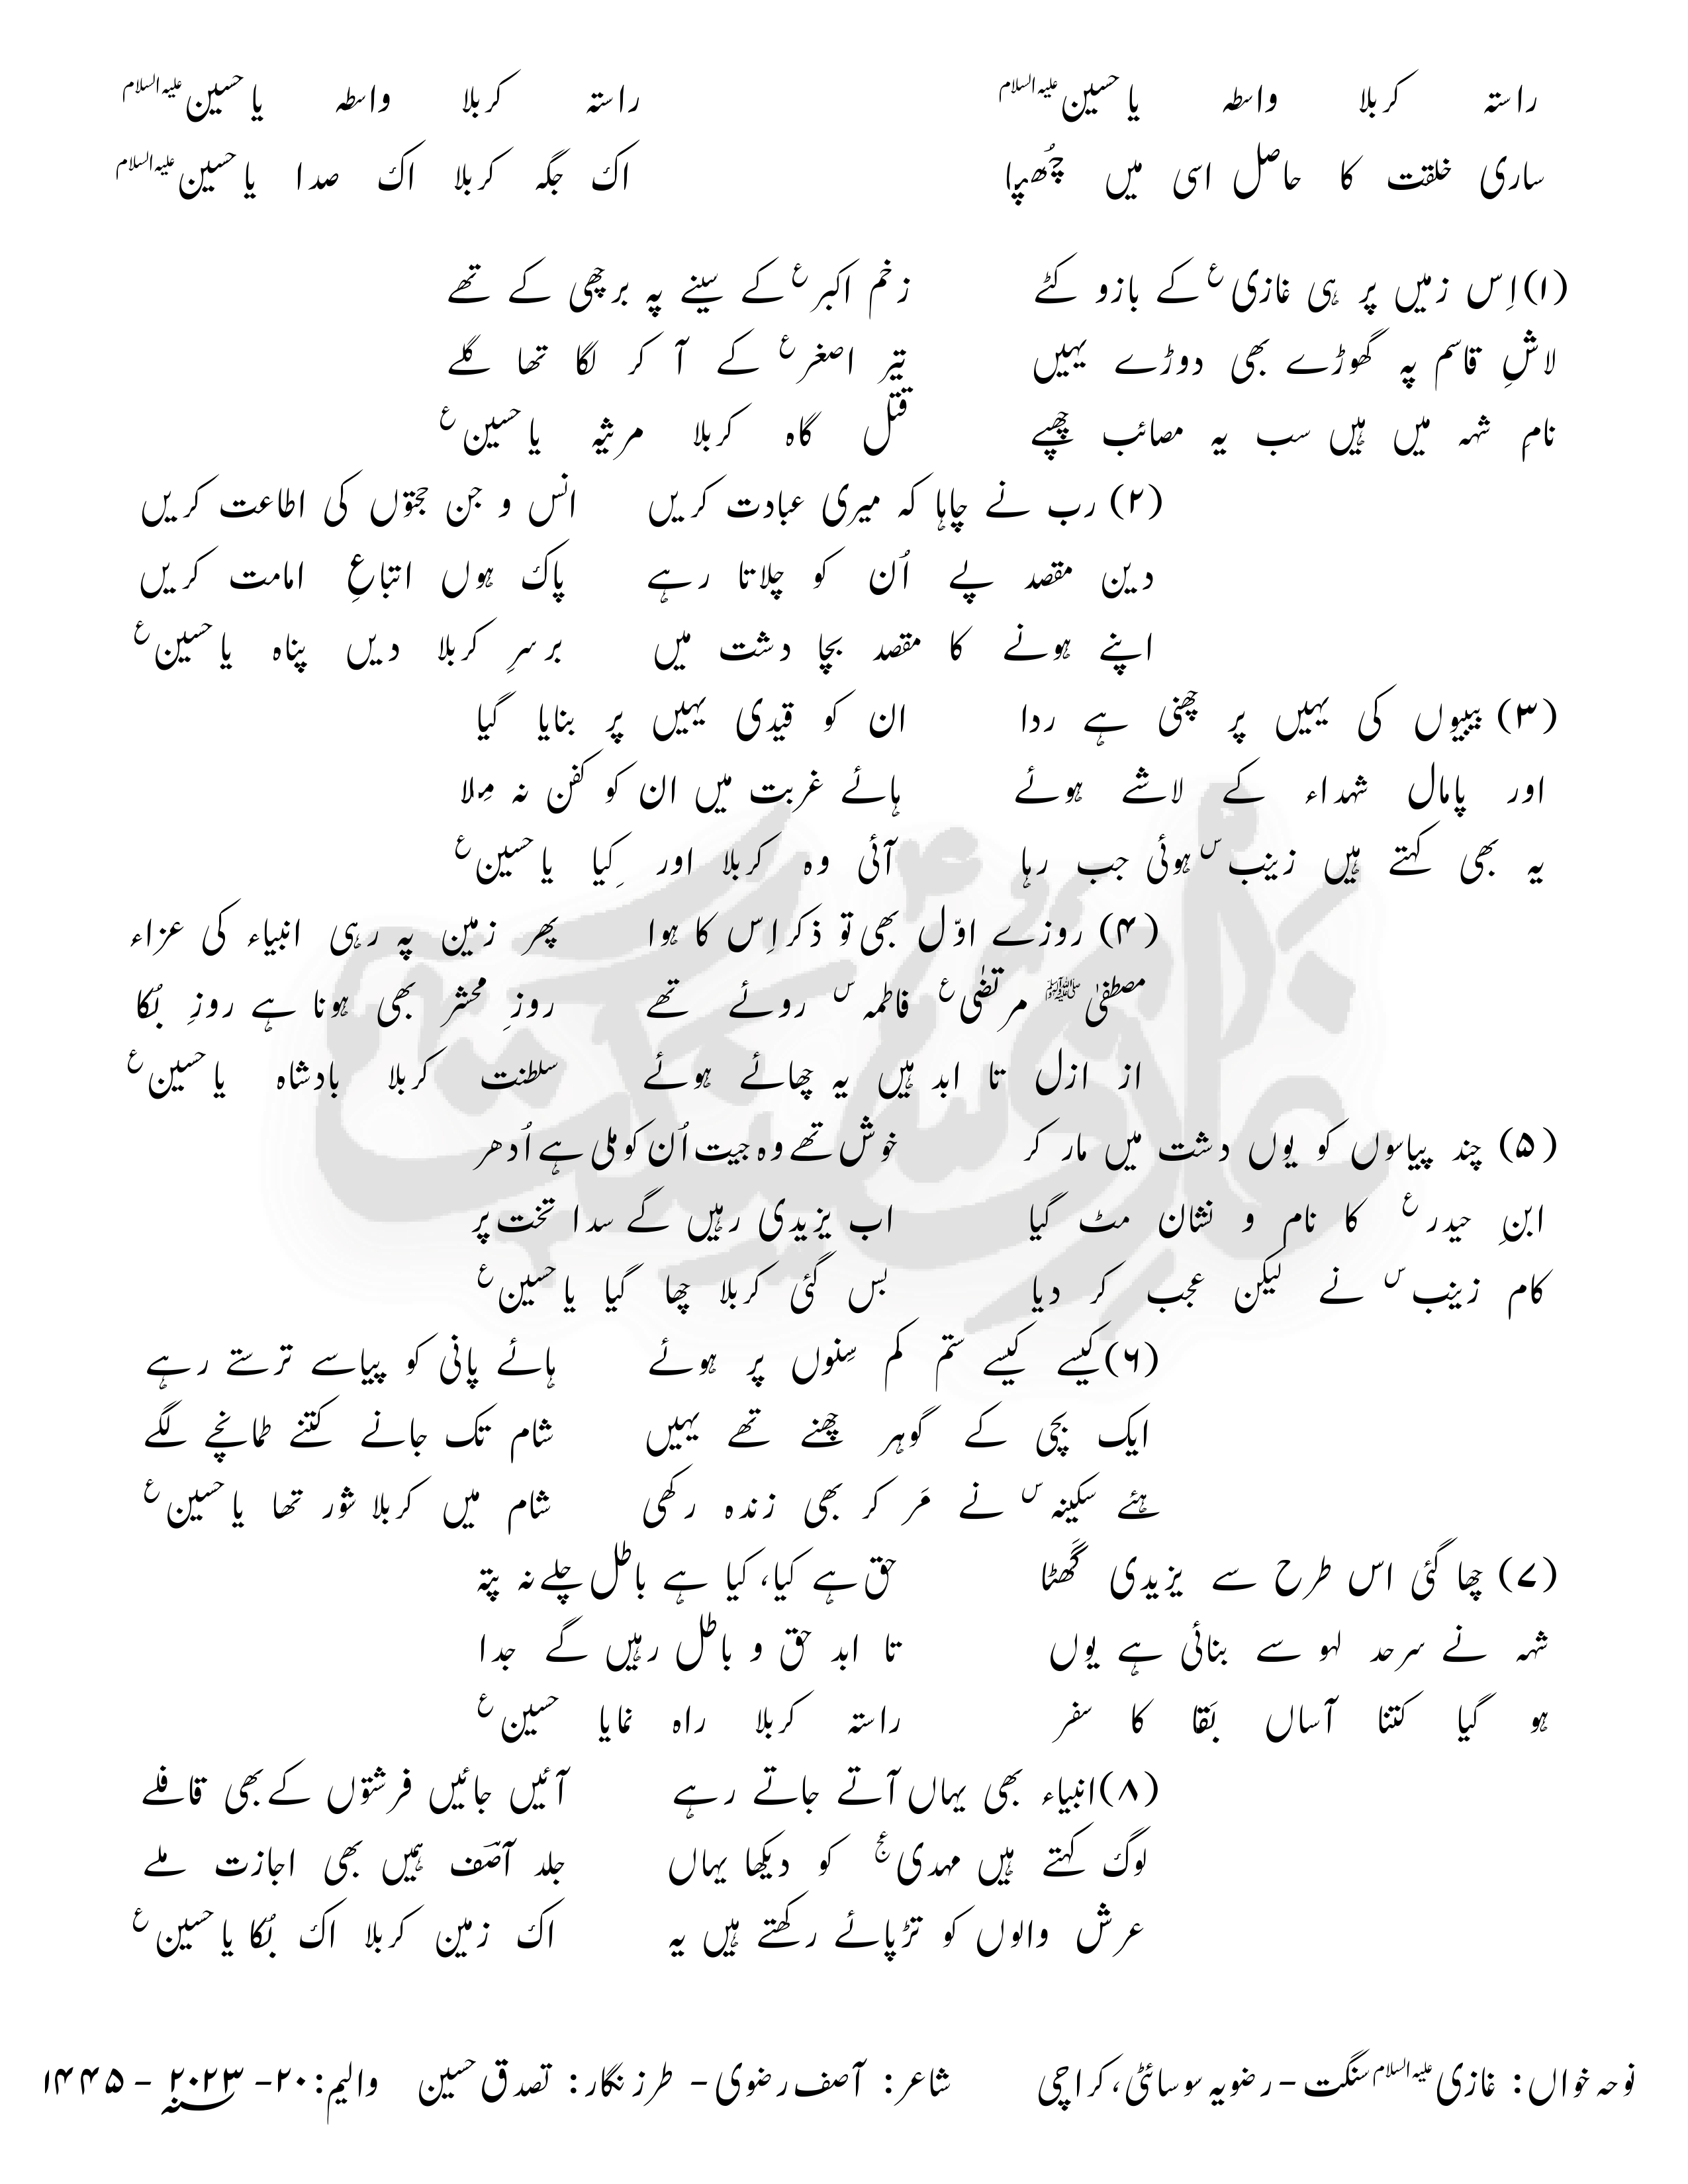 راستہ کربلا واسطہ یا حسین علیہ السلام راستہ کربلا واسطہ یا حسین علیہ السلام
ساری خلقت کا حاصل اسی میں چُھپا اک جگہ کربلا اک صدا یا حسین علیہ السلام
(۱) اِس زمیں پر ہی غازیؑ کے بازو کٹے زخم اکبرؑ کے سینے پہ برچھی کے تھے
لاشِ قاسم پہ گھوڑے بھی دوڑے یہیں تیر اصغرؑ کے آ کر لگا تھا گلے
نامِ شہہ میں ہیں سب یہ مصائب چھپے قتل گاہ کربلا مرثیہ یا حسینؑ
(۲) رب نے چاہا کہ میری عبادت کریں انس و جن حجتوں کی اطاعت کریں
دین مقصد پے اُن کو چلاتا رہے پاک ہوں اتباعِ امامت کریں
اپنے ہونے کا مقصد بچا دشت میں بر سرِ کربلا دیں پناہ یا حسینؑ
(۳) بیبیوں کی یہیں پر چھنی ہے ردا ان کو قیدی یہیں پر بنایا گیا
اور پامال شہداء کے لاشے ہوئے ہائے غربت میں ان کو کفن نہ مِلا
یہ بھی کہتے ہیں زینبؑ س ہوئی جب رہا آئی وہ کربلا اور کِیا یا حسینؑ
(۴) روزے اوّل بھی تو ذکر اِس کا ہوا پھر زمین پہ رہی انبیاء کی عزاء
مصطفیٰ ﷺ مرتضٰیؑ فاطمہ س روئے تھے روزِ محشر بھی ہونا ہے روزِ بُکا
از ازل تا ابد ہیں یہ چھائے ہوئے سلطنت کربلا بادشاہ یا حسینؑ
(۵) چند پیاسوں کو یوں دشت میں مار کر خوش تھے وہ جیت اُن کو ملی ہے اُدھر
ابنِ حیدرؑ کا نام و نشان مٹ گیا اب یزیدی رہیں گے سدا تخت پر
کام زینب س نے لیکن عجب کر دیا بس گئی کربلا چھا گیا یا حسینؑ
(۶) کیسے کیسے ستم کم سِنوں پر ہوئے ہائے پانی کو پیاسے ترستے رہے
ایک بچی کے گوہر چھنے تھے یہیں شام تک جانے کتنے طمانچے لگے
ہئے سکینہ س نے مَر کر بھی زندہ رکھی شام میں کربلا شور تھا یا حسینؑ
(۷) چھا گئی اس طرح سے یزیدی گَھٹا حق ہے کیا، کیا ہے باطل چلے نہ پتہ
شہہ نے سرحد لہو سے بنائی ہے یوں تا ابد حق و باطل رہیں گے جدا
ہو گیا کتنا آساں بَقا کا سفر راستہ کربلا راہ نمایا حسینؑ
(۸) انبیاء بھی یہاں آتے جاتے رہے آئیں جائیں فرشتوں کے بھی قافلے
لوگ کہتے ہیں مہدی عج کو دیکھا یہاں جلد آصف ہمیں بھی اجازت ملے
عرش والوں کو تڑپائے رکھتے ہیں یہ اک زمین کربلا اک بُکا یا حسینؑ
نوحہ خواں: غازی علیہ السلام سنگت - رضویہ سوسائٹی، کراچی شاعر: آصف رضوی - طرز نگار: تصدق حسین والیم: ۲۰ - ۲۰۲۳ - ۱۴۴۵
غازیؑ سنگت